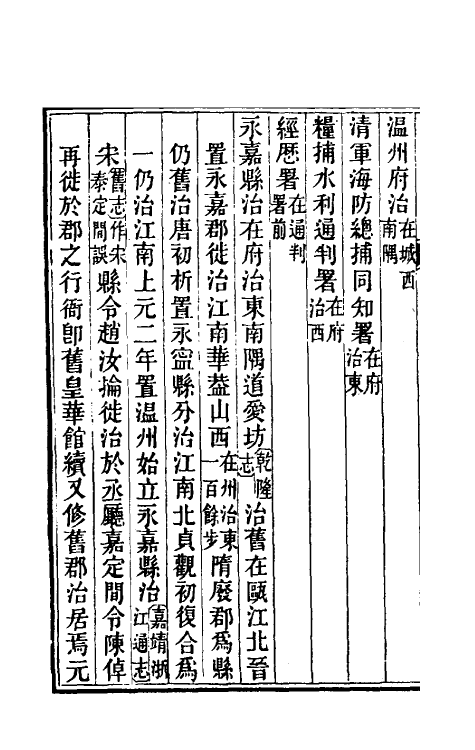 温州府治在城西南隅
清軍海防總捕同知署在府治東
糧捕水利通判署在府治西
經歷署在通判署前
永嘉縣治在府治東南隅道愛坊乾隆志治舊在甌江北晉
置永嘉郡徙治江南華葢山西在州治東一百餘步隋廢郡爲縣
仍舊治唐初析置永寧縣分治江南北貞觀初復合爲
一仍治江南上元二年置温州始立永嘉縣治嘉靖浙江通志
宋舊志作宋泰定間誤縣令趙汝掄徙治於丞廳嘉定間令陳倬
再徙於郡之行衙卽舊皇華館續又修舊郡治居焉元